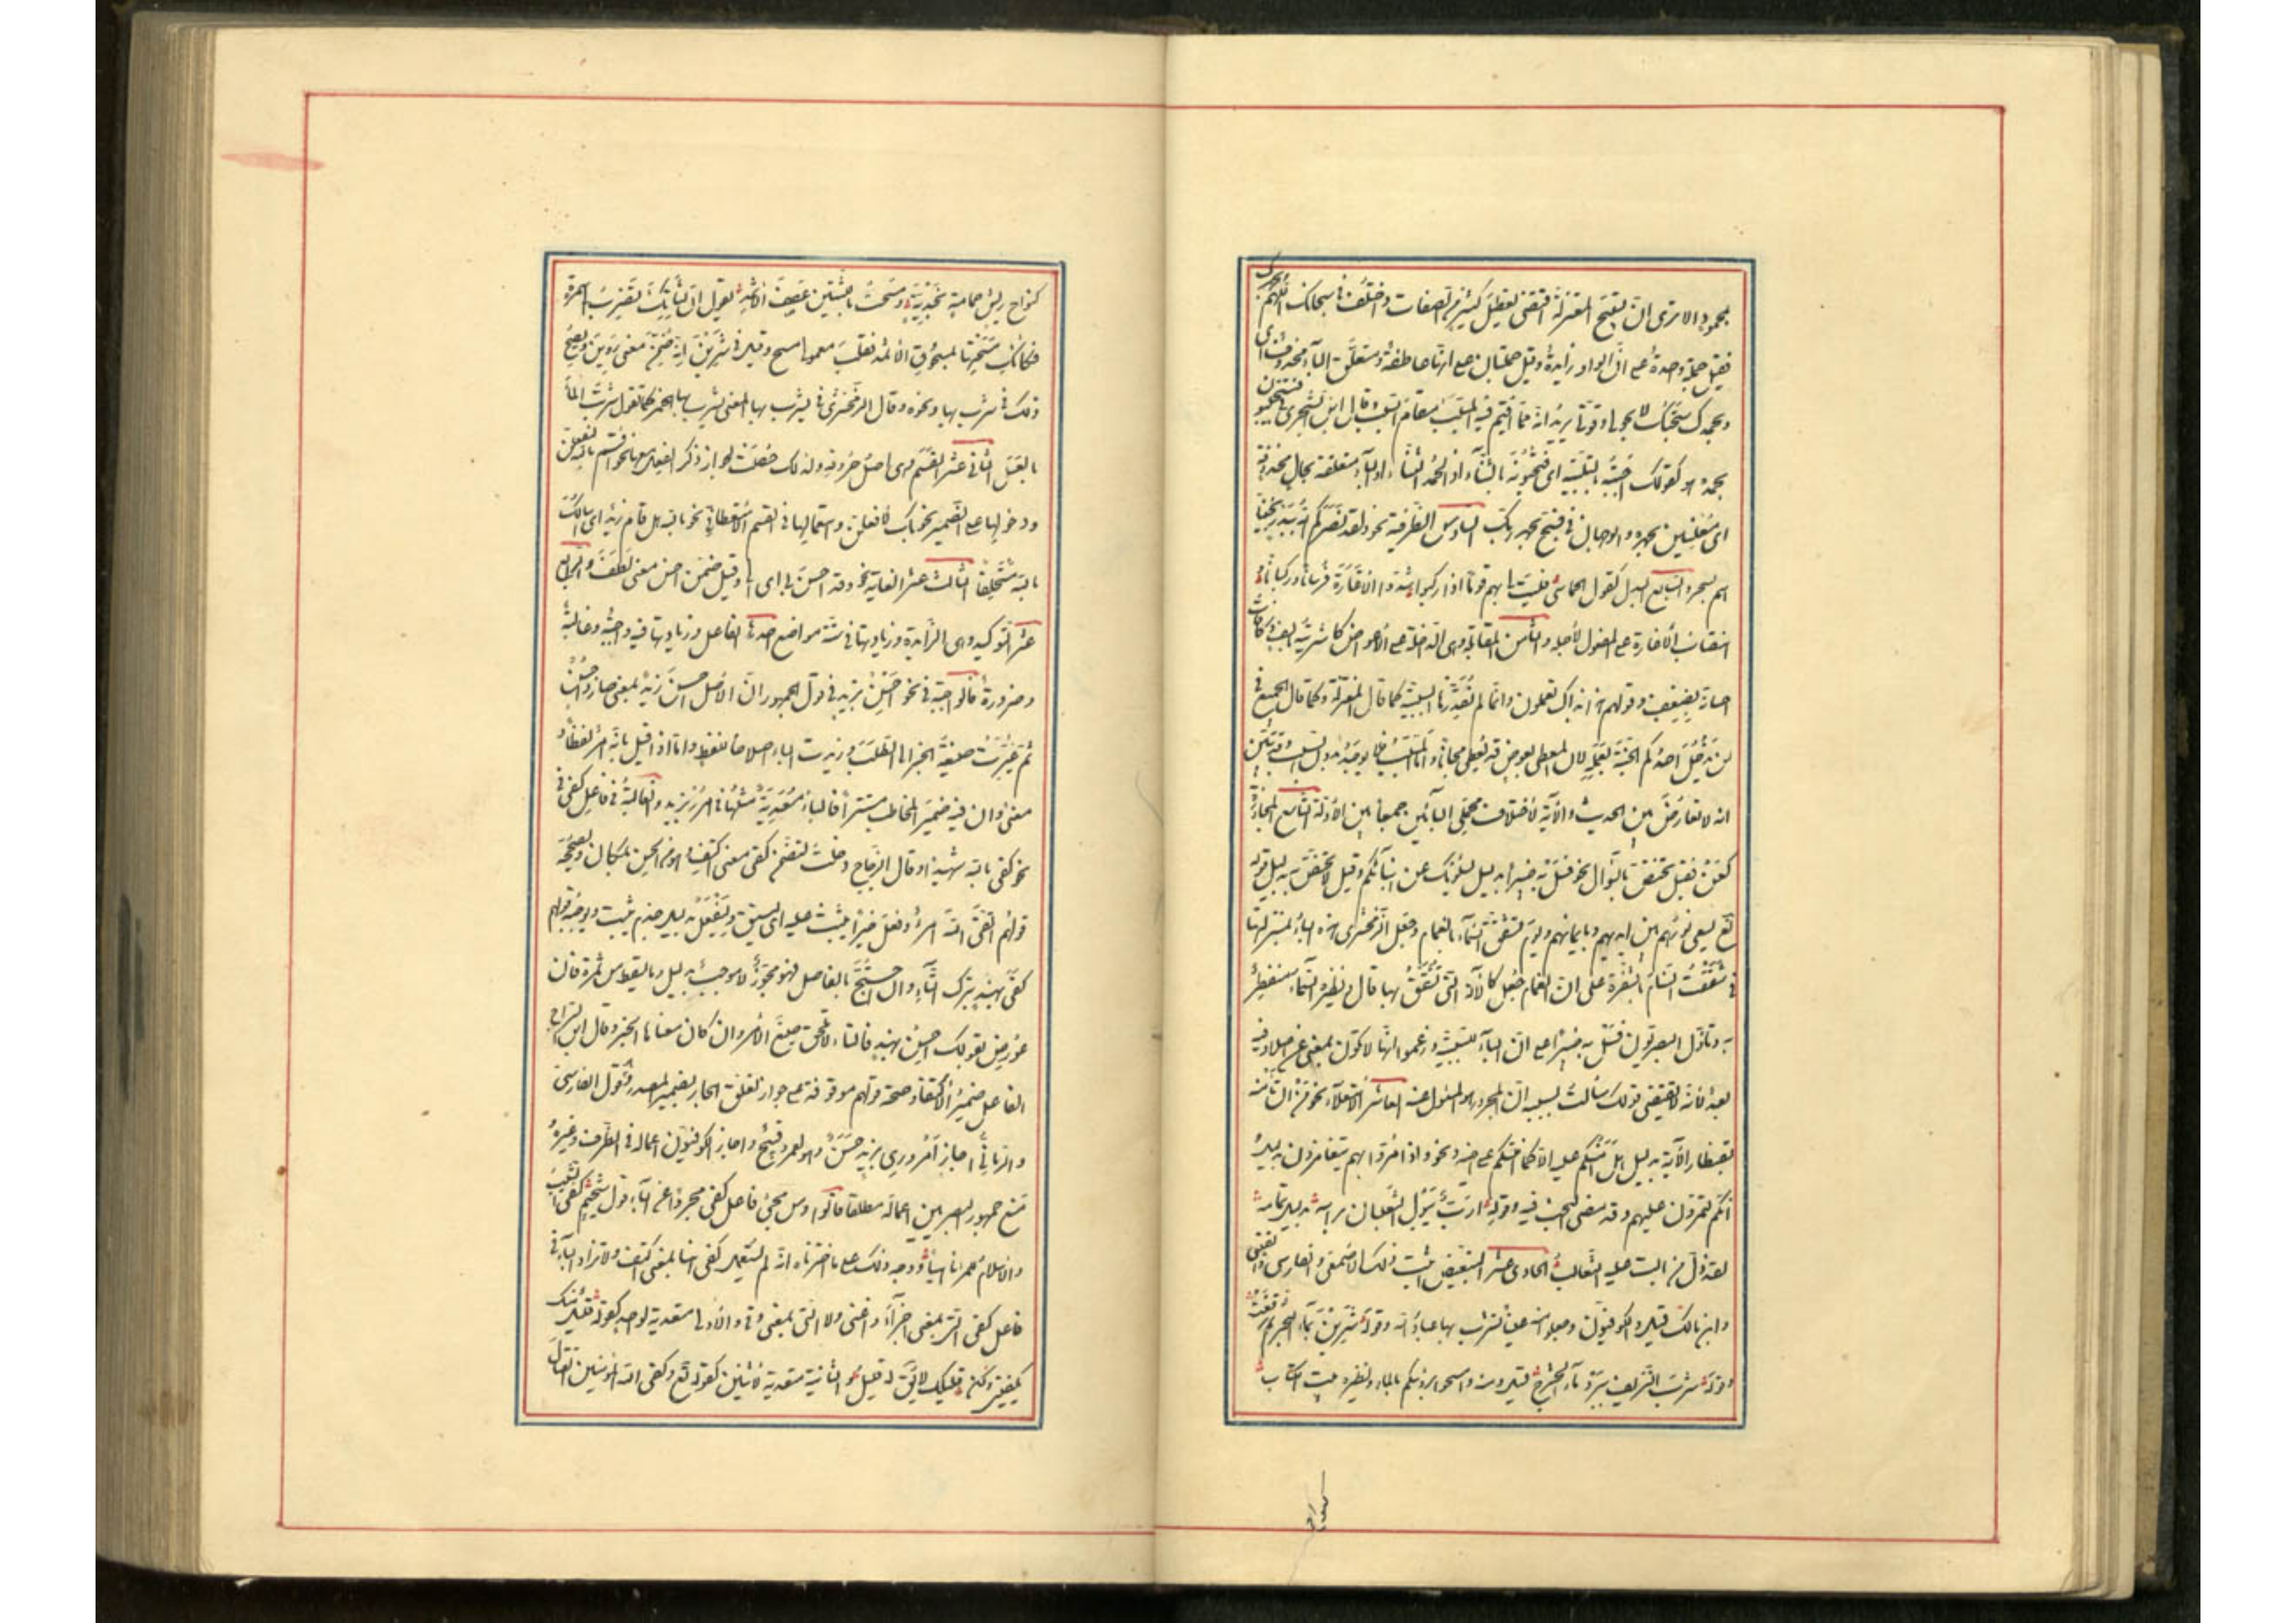 بمحمود الا ترى ان تسبيح المعتزلة اقتضى تعطيل كثير من الصفات واختلف في سبحانك اللهم
وبحمدك فقيل جملة واحدة على ان الواو زايدة وقيل جملتان على انها عاطفة ومتعلق الباء محذوف اى
وبحمدك سبحتك لا بحولى وقوتى يريد انه مما اقيم فيه المسبب مقام السبب وقال ابن الشجرى في فتستجيبون
بحمده هو كقولك اجبته بالتلبية اى فتجيبونه بالثناء اذ الحمد الثناء او الباء متعلقة بحال محذوفة
اى معلنين بحمده والوجهان في فسبح بحمد ربك السادس الظرفية نحو ولقد نصركم الله ببدر نجينا
هم بسحر والسابع البدل كقول الحماسى فليت لى بهم قوما اذا ركبوا شدوا الاغارة فرسانا وركبانا
انتصاب الاغارة على المفعول لاجله والثامن المقابلة وهى الداخلة على الاعواض كاشتريته بالف وكافات
احسانه بضعف وقولهم هذا بذاك تعملون وانما لم نقدرها باء السببية كما قال المعتزلة وكما قال الجميع في
لن يدخل احدكم الجنة بعمله لان المعطى بعوض قد يعطى مجانا واما المسبب فلا يوجد بدون السبب وقد تبين
انه لا تعارض بين الحديث والآية لاختلاف محملى البائين جمعا بين الادلة التاسع المجاوزة
كعن فقيل تختص بالسؤال نحو فسئل به خبيرا بدليل يسئلونك عن انبائكم وقيل لا تختص به بدليل قوله
تع يسعى نورهم بين ايديهم وبايمانهم ويوم تشقق السماء بالغمام وجعل الزمخشرى هذه الباء بمنزلتها
في شققت السنام بالشفرة على ان الغمام جعل كالآلة التى تشقق بها قال ونظيره السماء منفطر
به وتأول البصريون فسئل به خبيرا على ان الباء للسببية وزعموا انها لا تكون بمعنى عن اصلا وفيه
بعد لانه لا يقتضى قولك سألت بسببه ان المجرور هو المسئول عنه العاشر الاستعلاء نحو من ان تأمنه
بقنطار الآية بدليل هل آمنكم عليه الا كما امنتكم على اخيه ونحو واذا مروا بهم يتغامزون بدليل
انكم لتمرون عليهم وقد مضى البحث فيه وقوله ارب يبول الثعلبان برأسه بدليل تمامه
لقد ذل من بالت عليه الثعالب الحادى عشر التبعيض اثبت ذلك الاصمعى والفارسى والقتبى
وابن مالك قيل والكوفيون وجعلوا منه عينا يشرب بها عباد الله وقوله شربن بماء البحر ثم ترفعت
وقوله شرب النزيف ببرد ماء الحشرج قيل ومنه وامسحوا برؤسكم بالماء ونظيره بيت الكتاب
كنواح ريش حمامة نجدية ومسحت باللثتين عصف الاثمد يقول ان لثاتك تضرب الى سمرة
فكانك مسحتها بمسحوق الاثمد فقلب معمولى مسح وقيل في شربن انه ضمن معنى روين ويصح
ذلك في يشرب بها ونحوه وقال الزمخشرى في يشرب بها المعنى يشرب بها الخمر كما تقول شربت الماء
بالعسل الثانى عشر القسم وهى اصل حروفه ولذلك خصت بجواز ذكر الفعل معها نحو اقسم بالله لتفعلن
ودخولها على الضمير نحو بك لافعلن واستعمالها في القسم الاستعطافى نحو بالله هل قام زيد اى اسالك
بالله مستحلفا الثالث عشر الغاية نحو وقد احسن بى اى الى وقيل ضمن احسن معنى لطف والرابع
عشر التوكيد وهى الزايدة وزيادتها في ستة مواضع احدها الفاعل وزيادتها فيه واجبة وغالبة
وضرورة فالواجبة في نحو احسن بزيد في قول الجمهور ان الاصل احسن زيد بمعنى صار ذا حسن
ثم غيرت صيغة الخبر الى الطلب وزيدت الباء اصلاحا للفظ واما اذا قيل بانه امر لفظا و
معنى وان فيه ضمير المخاطب مستترا فالباء معدية مثلها في امرر بزيد والغالبة في فاعل كفى في
نحو كفى بالله شهيدا وقال الزجاج دخلت لتضمن كفى معنى اكتف وهو من الحسن بمكان ويصححه
قولهم اتقى الله امرؤ وفعل خيرا يثب عليه اى ليتق وليفعل بدليل جزم يثب ويوجبه قولهم
كفى بهند بترك التاء وان احتج بالفاصل فهو مجوز لا موجب بدليل وما تسقط من ثمرة فان
عورض بقولك احسن بهند فالتاء لا تلحق صيغ الامر وان كان معناها الخبر وقال ابن السراج
الفاعل ضمير الاكتفاء وصحة قولهم موقوفة على جواز تعلق الجار بضمير المصدر وهو قول الفارسى
والرمانى اجازا مرورى بزيد حسن وهو بعمرو قبيح واجاز الكوفيون اعماله في الظرف وغيره
منع جمهور البصريين اعماله مطلقا قالوا ومن مجئ فاعل كفى مجردا عن الباء قول سحيم كفى الشيب
والاسلام للمرء ناهيا ووجه ذلك على ما اخترناه انه لم يستعمل كفى هنا بمعنى اكتف ولا تزاد الباء في
فاعل كفى التى بمعنى اجزأ واغنى ولا التى بمعنى وقى والاولى متعدية لواحد كقوله قليل منك
يكفينى ولكن قليلك لا يقال له قليل والثانية متعدية لاثنين كقوله تع وكفى الله المؤمنين القتال